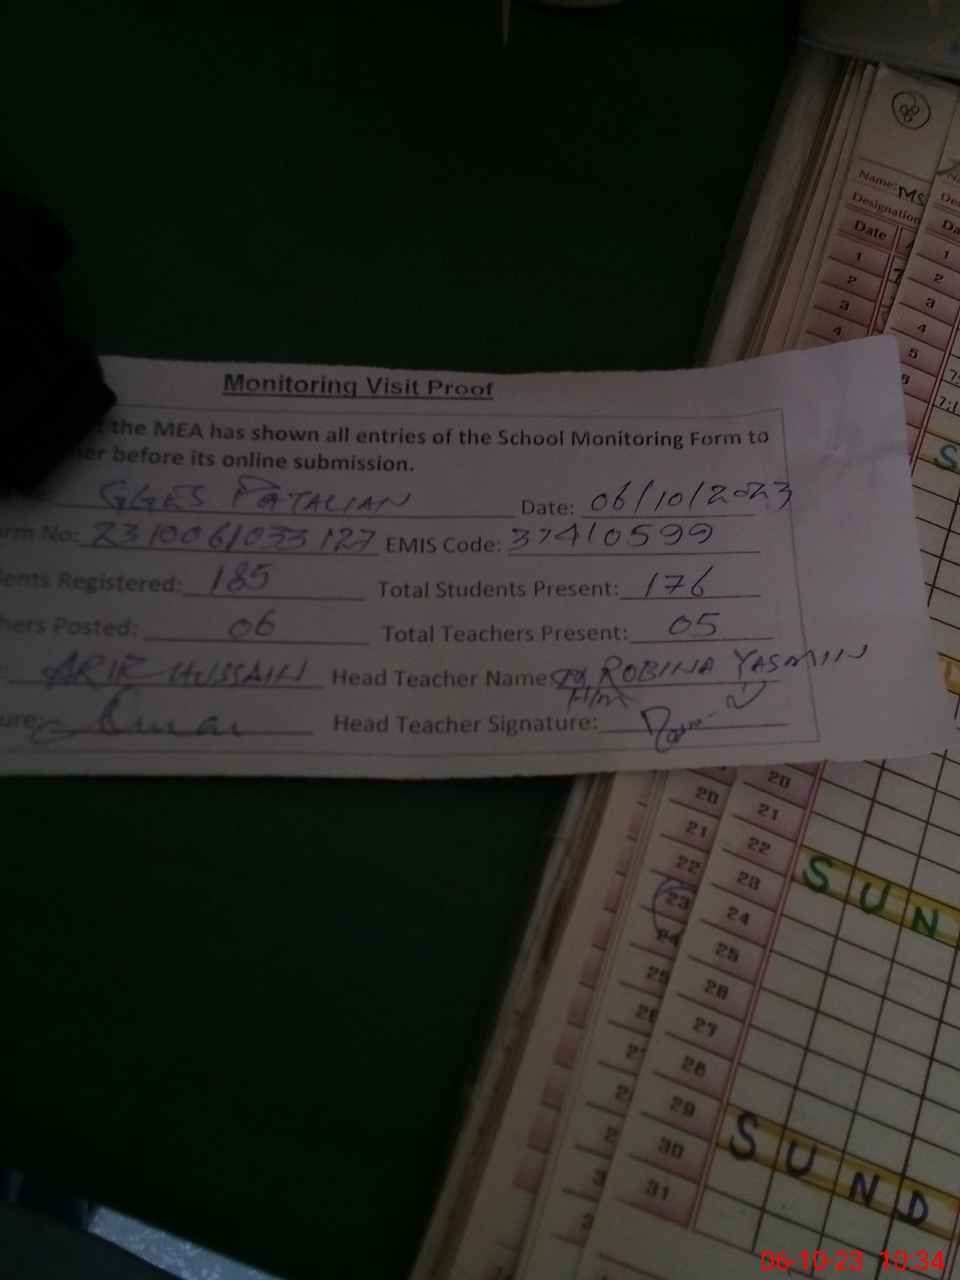 Monitoring Visit Proof
the MEA has shown all entries of the School Monitoring Form to
her before its online submission.
GGES PATALIAN Date: 06/10/2023
No: 2310061033127 EMIS Code: 37410599
Registered: 185 Total Students Present: 176
Posted: 06 Total Teachers Present: 05
HUSSAIN Head Teacher Name ROBINA YASMIIN
Head Teacher Signature:
Name: MS
Designation
Date
1
2
3
4
1
2
3
4
5
6
20
21
22
23
24
25
20
21
22
23
24
25
26
27
28
29
30
31
SUN
SUND
06-10-23 10:34